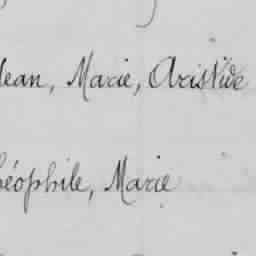 Jean, Marie, Aristide
héophile, Marie